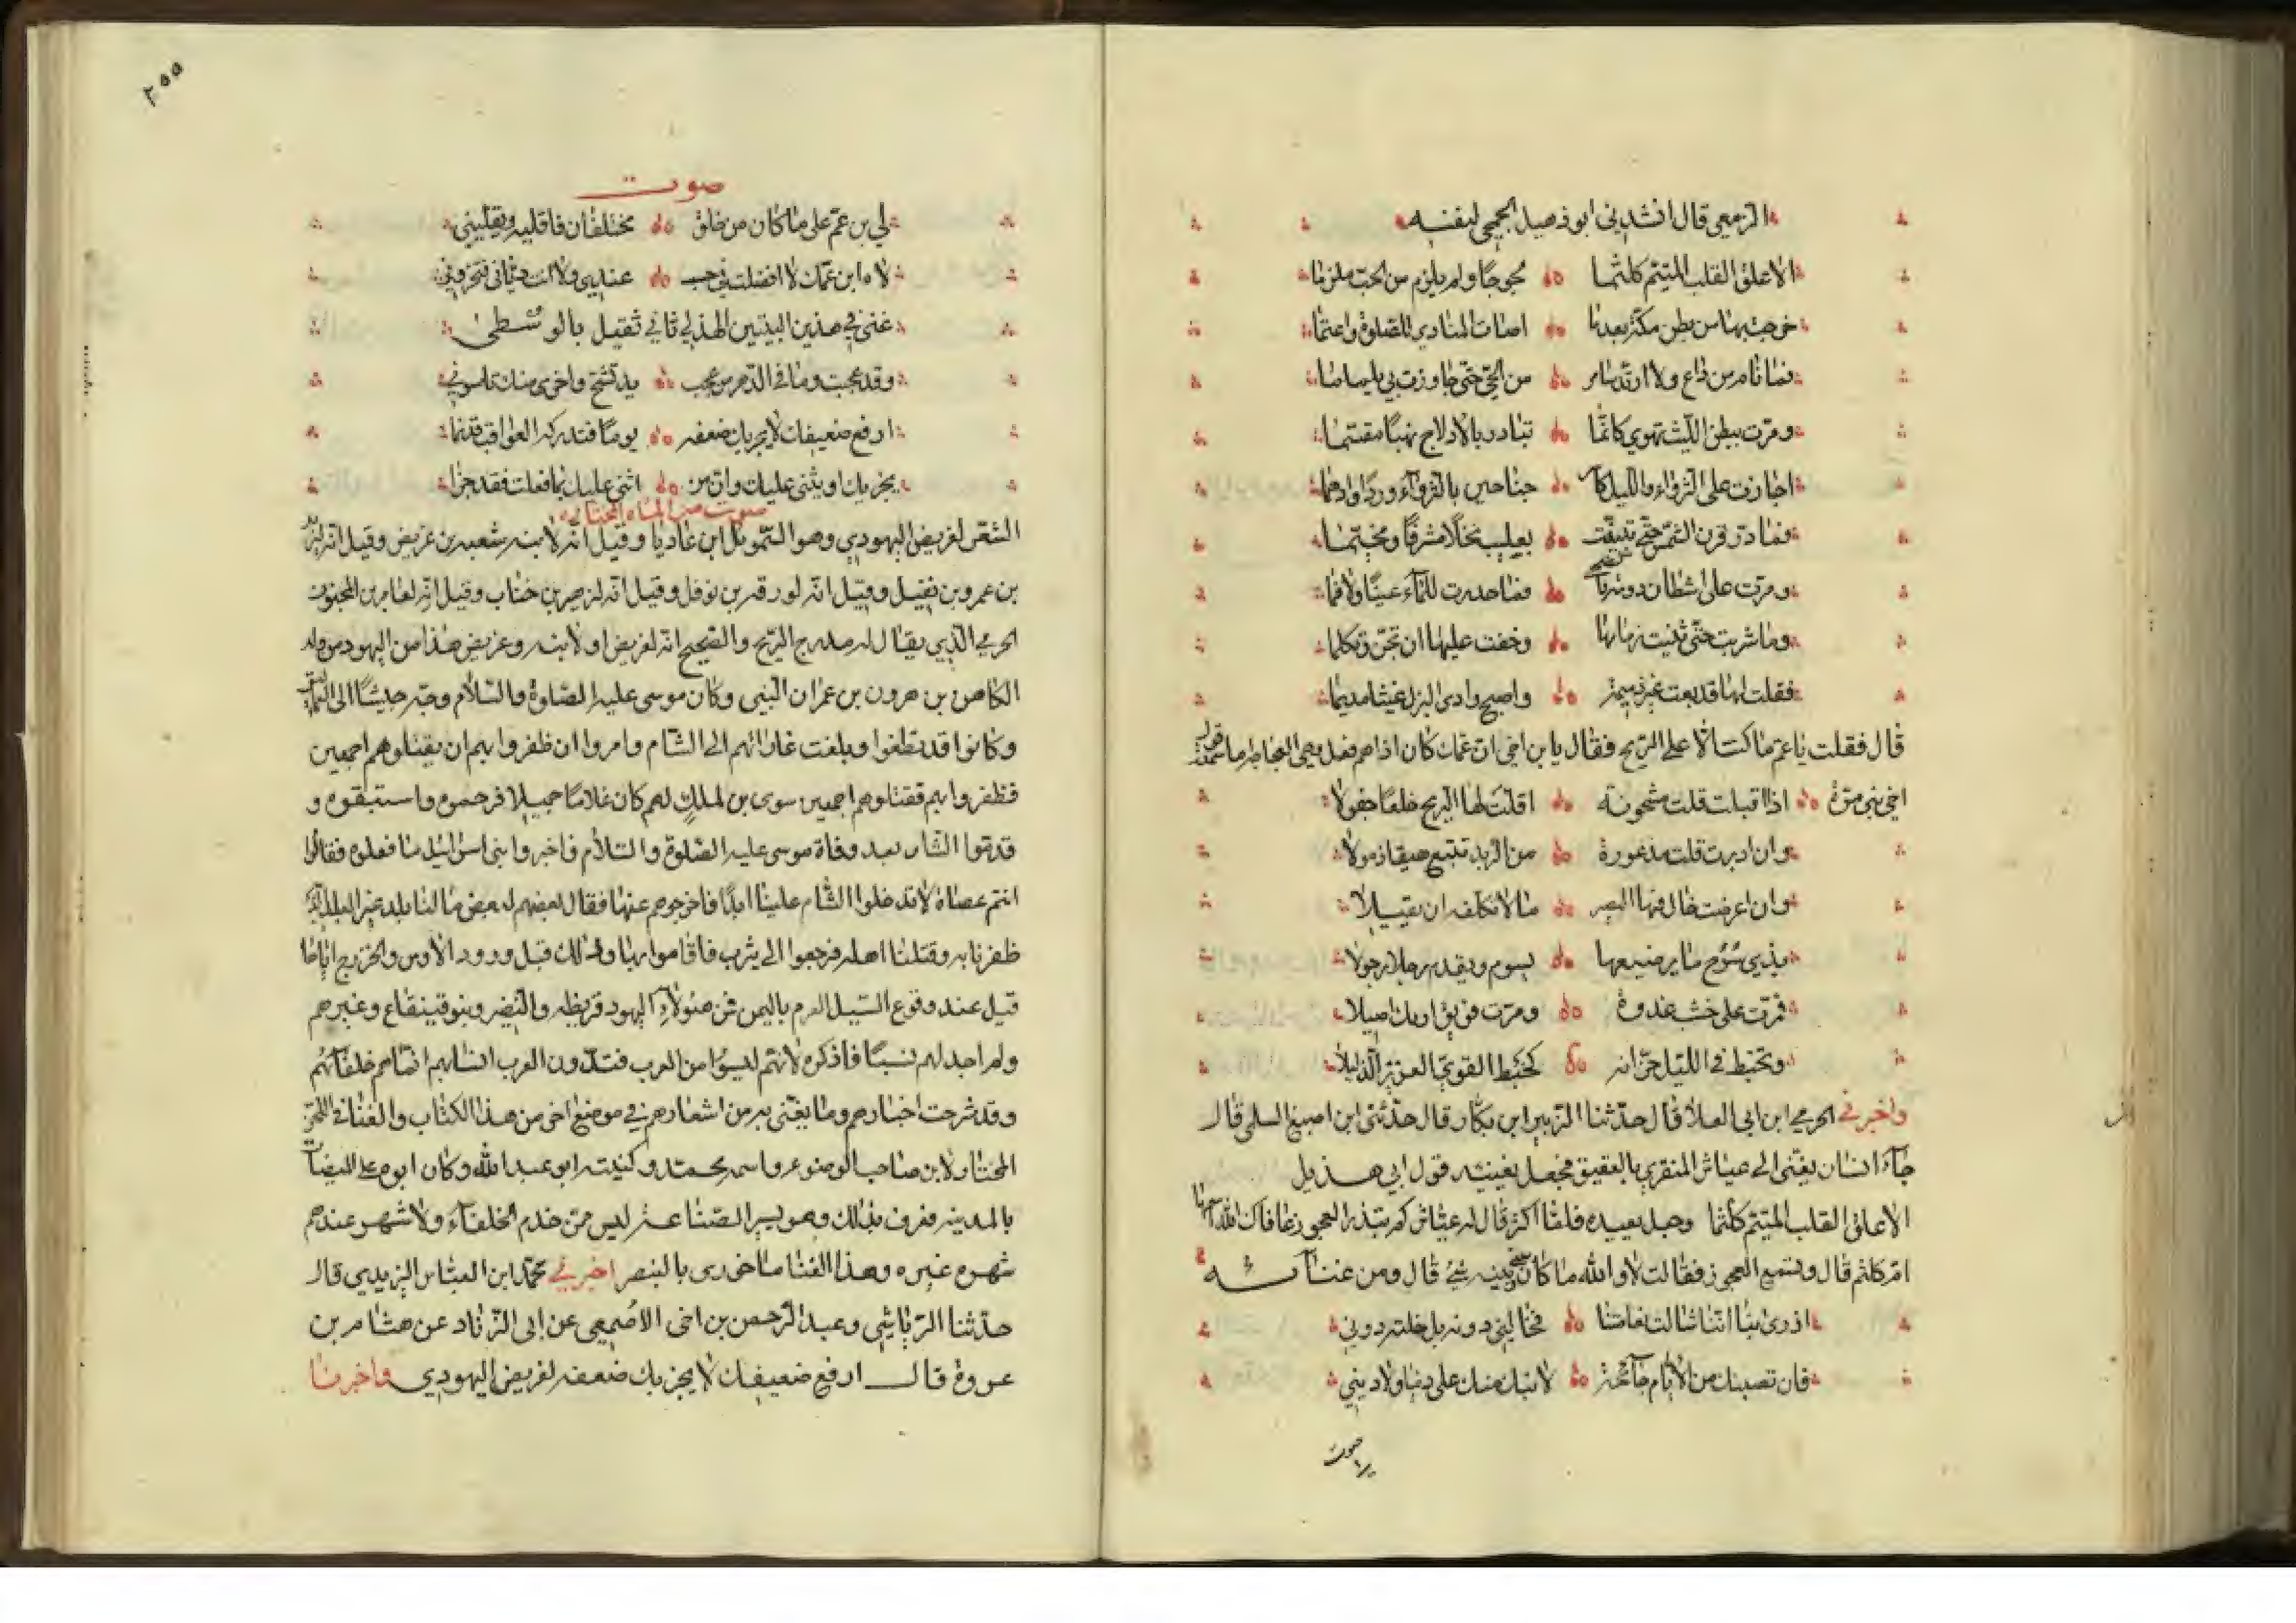 قال انشدني ابو دهبل الجمحي لنفسه
الا علق القلب المتيم كلثما لجوجا ولم يلزم من الحب ملزما
خرجت بها من بطن مكة بعدما اصات المنادي للصلوة واعتما
فما نام من راع ولا ارتد سامر من الحي حتى جاوزت بي يلملما
ومرت ببطن الليث تهوي كانما تبادر بالادلاج نهبا مقسما
اجازت على البزواء والليل جناحين بالبزواء وردا وادهما
فما ذر قرن الشمس حتى تبينت بعليب نخلا مشرفا ومخيما
ومرت على اشطان فما للماء عينا ولا فما
وما شربت حتى ثنيت زمامها وخفت عليها ان تجن وتكلما
فقلت لها قد بعت غير ذميمة واصبح وادى البرك غيثا مديما
قال فقلت يا عم ما كنت الا على الريح فقال يا بن اخي ان عمك كان اذا هم فعل وهي
اخي بني مرة اذا اقبلت قلت مشحونة اقلت لها الريح قلعا جفولا
وان ادبرت قلت مذعورة من الربد تتبع هيقا ذمولا
وان اعرضت خال فيها البصير ما لا تكلفه ان يقيلا
يسوم ويقدم رجلا رجولا
فمرت على خشب غدوة ومرت فويق اريك اصيلا
وتخبط في الليل حزانه كخبط القوي العزيز الذليلا
واخبرني الحرمي ابن ابي العلا قال حدثنا الزبير ابن بكار قال حدثني ابن اصبغ السلمي قال
جاء انسان يغني الى عياش المنقري بالعقيق فجعل يغنيه قول ابي هذيل
الا علق القلب المتيم كلثما وجعل يعيده فلما اكثر قال له عياش كم تنذر العجوز عافاك الله
ام كلثم قال وتسمع العجوز فقالت لا والله ما كان بينه شئ قال ومن غنائه
ازرى بنا اننا شالت نعامتنا فخالني دونه بل خلته دوني
فان تصبك من الايام جائحة لا نبك منك على دنيا ولا دين
صوت
٢٥٥
صوت
لي بن عم على ما كان من خلق مختلفان فاقليه ويقليني
لاه ابن عمك لا افضلت في حسب عندي ولا انت دياني فتخزوني
غنى في هذين البيتين الهذلي ثاني ثقيل بالوسطى
وقد عجبت وما في الدهر من عجب يد تشج واخرى منك تاسوني
صوت من المائة المختارة
ارفع ضعيفك لا يحربك ضعفه يوما فتدركه العواقب قد نما
يجزيك او يثني عليك وان من اثنى عليك بما فعلت فقد جزا
الشعر لغريض اليهودي وهو السموئل ابن عاديا وقيل انه لابنه شعبه بن غريض وقيل انه لزيد
بن عمرو بن نفيل وقيل انه لورقه بن نوفل وقيل انه لزهير بن جناب وقيل انه لعامر بن المجنون
الحرمي الذي يقال له مدرج الريح والصحيح انه لغريض او لابنه وغريض هذا من اليهود من ولد
الكاهن بن هرون بن عمران النبي وكان موسى عليه الصلوة والسلام وجه جيشا الى العماليق
وكانوا قد طغوا وبلغت غاراتهم الى الشام وامروا ان ظفروا بهم ان يقتلوهم اجمعين
فظفروا بهم فقتلوهم اجمعين سوى بن لملك لهم كان غلاما جميلا فرحموه واستبقوه و
قدموا الشام بعد وفاة موسى عليه الصلوة والسلام فاخبروا بني اسرائيل ما فعلوه فقالوا
انتم عصاة لا تدخلوا الشام علينا ابدا فاخرجوهم عنها فقال بعضهم لبعض ما لنا بلد غير البلد الذي
ظفرنا به وقتلنا اهله فرجعوا الى يثرب فاقاموا بها وذلك قبل ورود الاوس والخزرج اياها
قبل عند وقوع السيل العرم باليمن فمن هؤلاء اليهود قريظه والنضير وبنو قينقاع وغيرهم
ولم اجد لهم نسبا فاذكره لانهم ليسوا من العرب فتدون العرب انسابهم انما هم حلفائهم
وقد شرحت اخبارهم وما يغنى به من اشعارهم في موضع اخر من هذا الكتاب والغنا في اللحن
المختار لابن صاحب الوضوء واسمه محمد وكنيته ابو عبد الله وكان ابوه على الميضاة
بالمدينه فعرف بذلك وهو يسير الصناعه ليس ممن خدم الخلفاء ولا شهر عندهم
شهره غيره وهذا الغنا ماخورى بالبنصر اخبرني محمد ابن العباس اليزيدي قال
حدثنا الرياشي وعبد الرحمن بن اخى الاصمعي عن ابى الزناد عن هشام بن
عروة قال ارفع ضعيفك لا يحزبك ضعفه لغريض اليهودي واخبرنا